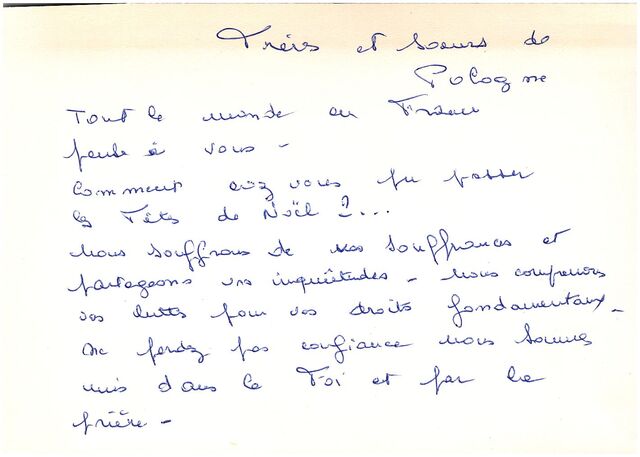 Frères et soeurs de
Pologne
Tout le monde en France
pense à vous -
Comment avez vous pu passer
les Fêtes de Noël ?...
Nous souffrons de vos souffrances et
partageons vos inquiétudes - Nous comprenons
vos luttes pour vos droits fondamentaux -
Ne perdez pas confiance nous sommes
unis dans la Foi et par la
prière -